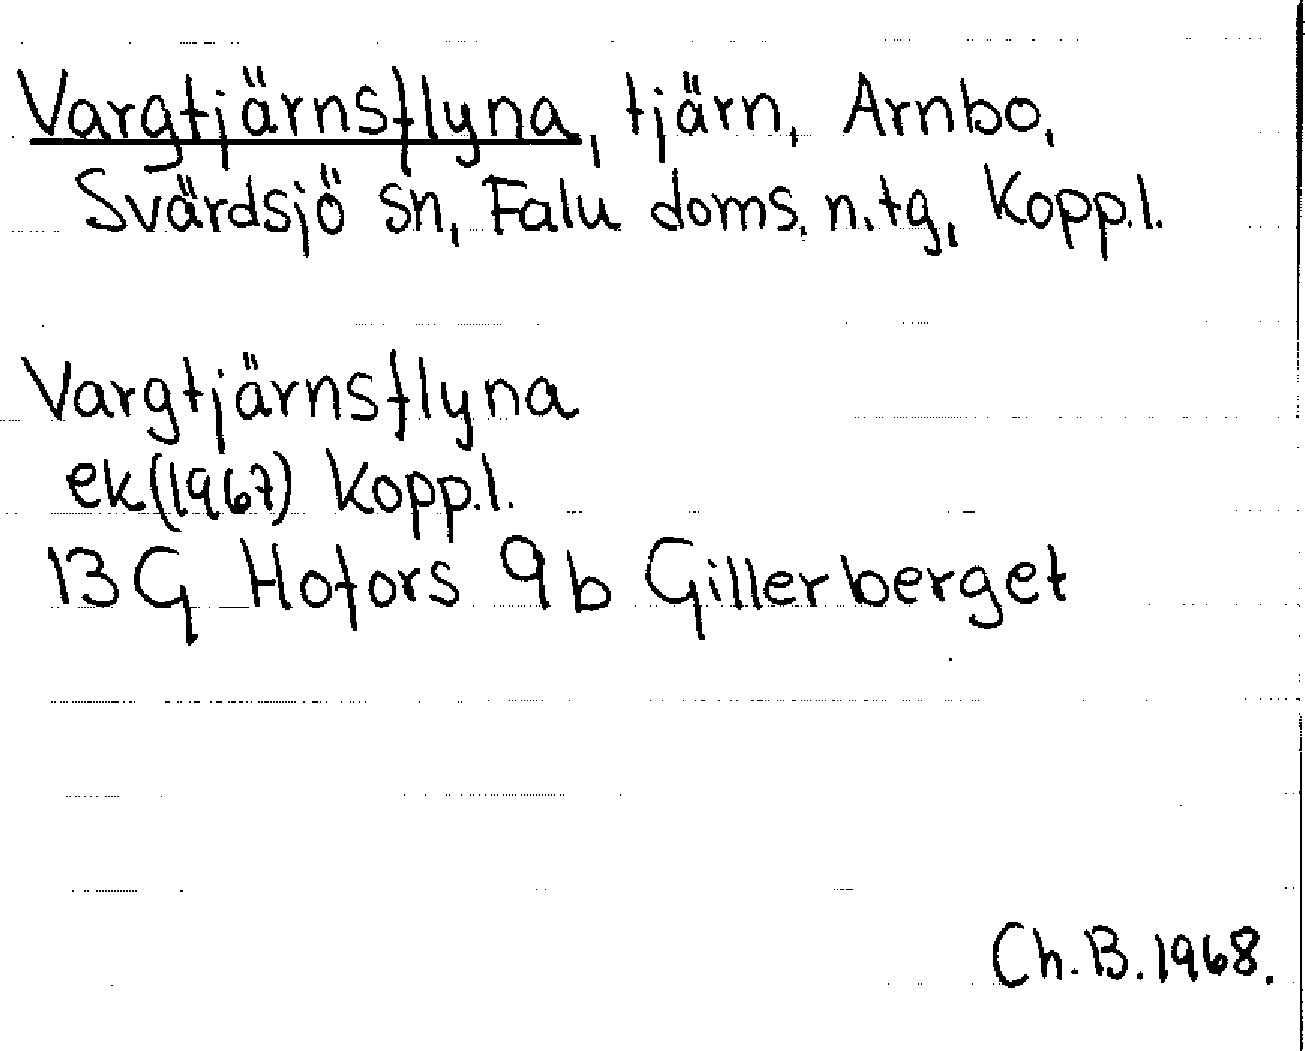 Vargtjärnsflyna, tjärn, Arnbo,
Svärdsjö sn, Falu doms. n. tg, Kopp.l.
Vargtjärnsflyna
ek (1967) Kopp.l.
13G Hofors 9b Gillerberget
Ch. B. 1968.